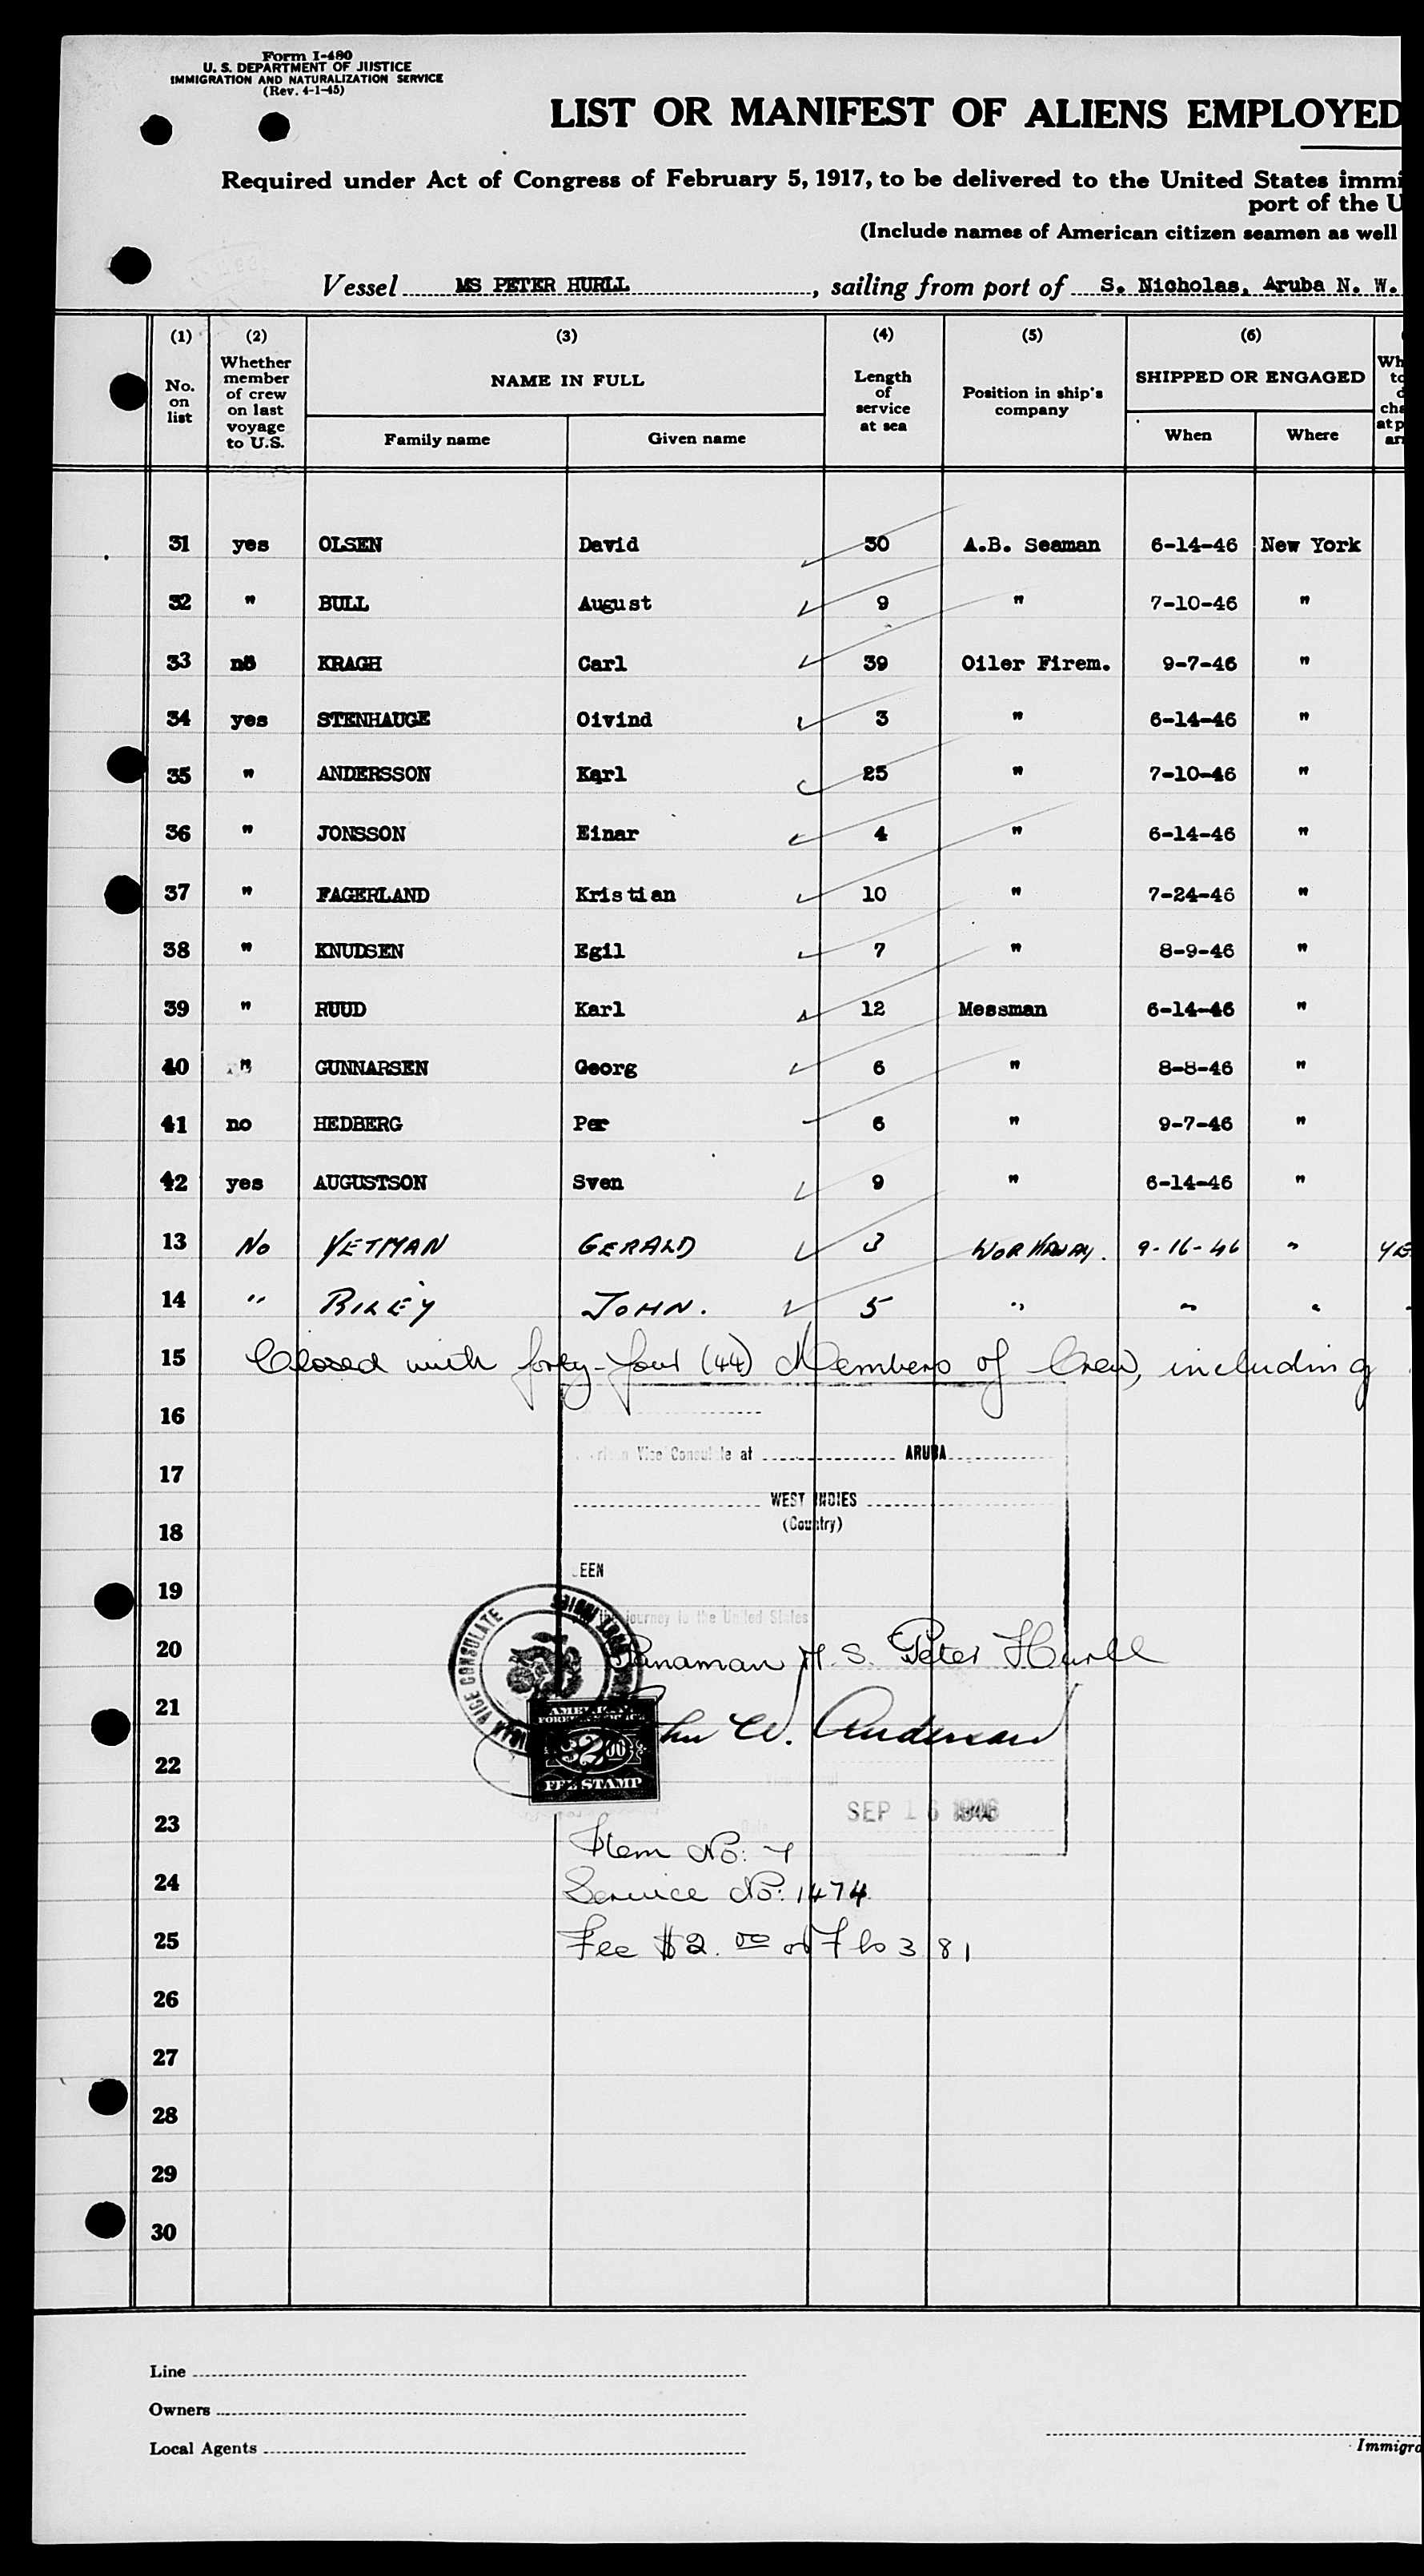 Form I-480
U. S. DEPARTMENT OF JUSTICE
IMMIGRATION AND NATURALIZATION SERVICE
(Rev. 4-1-45)
LIST OR MANIFEST OF ALIENS EMPLOYED
Required under Act of Congress of February 5, 1917, to be delivered to the United States immi
port of the U
(Include names of American citizen seamen as well
Vessel MS PETER HURLL, sailing from port of S. Nicholas, Aruba N. W.
(1) (2) (3) (4) (5) (6)
No. on list
Whether member of crew on last voyage to U.S.
NAME IN FULL
Family name Given name
Length of service at sea
Position in ship's company
SHIPPED OR ENGAGED
When Where
31 yes OLSEN David 30 A.B. Seaman 6-14-46 New York
32 " BULL August 9 " 7-10-46 "
33 no KRAGH Carl 39 Oiler Firem. 9-7-46 "
34 yes STENHAUGE Oivind 3 " 6-14-46 "
35 " ANDERSSON Karl 25 " 7-10-46 "
36 " JONSSON Einar 4 " 6-14-46 "
37 " FAGERLAND Kristian 10 " 7-24-46 "
38 " KNUDSEN Egil 7 " 8-9-46 "
39 " RUUD Karl 12 Messman 6-14-46 "
40 " GUNNARSEN Georg 6 " 8-8-46 "
41 no HEDBERG Per 6 " 9-7-46 "
42 yes AUGUSTSON Sven 9 " 6-14-46 "
13 No YETMAN GERALD 3 WORKAWAY. 9-16-46 " YE
14 " RILEY JOHN. 5 " " "
15 Closed with forty-four (44) Members of Crew, including
16
Vice Consulate at ARUBA
17
WEST INDIES
18 (Country)
EEN
19
journey to the United States
VICE CONSULATE
20 Panaman M. S. Peter Hurll
21 John W. Anderson
AMERICAN
FOREIGN SERVICE
$2.00
22 FEE STAMP
SEP 16 1946
23
Item No: 4
24 Service No: 1474
25 Fee $2.00
26
27
28
29
30
Line
Owners
Local Agents
Immigra